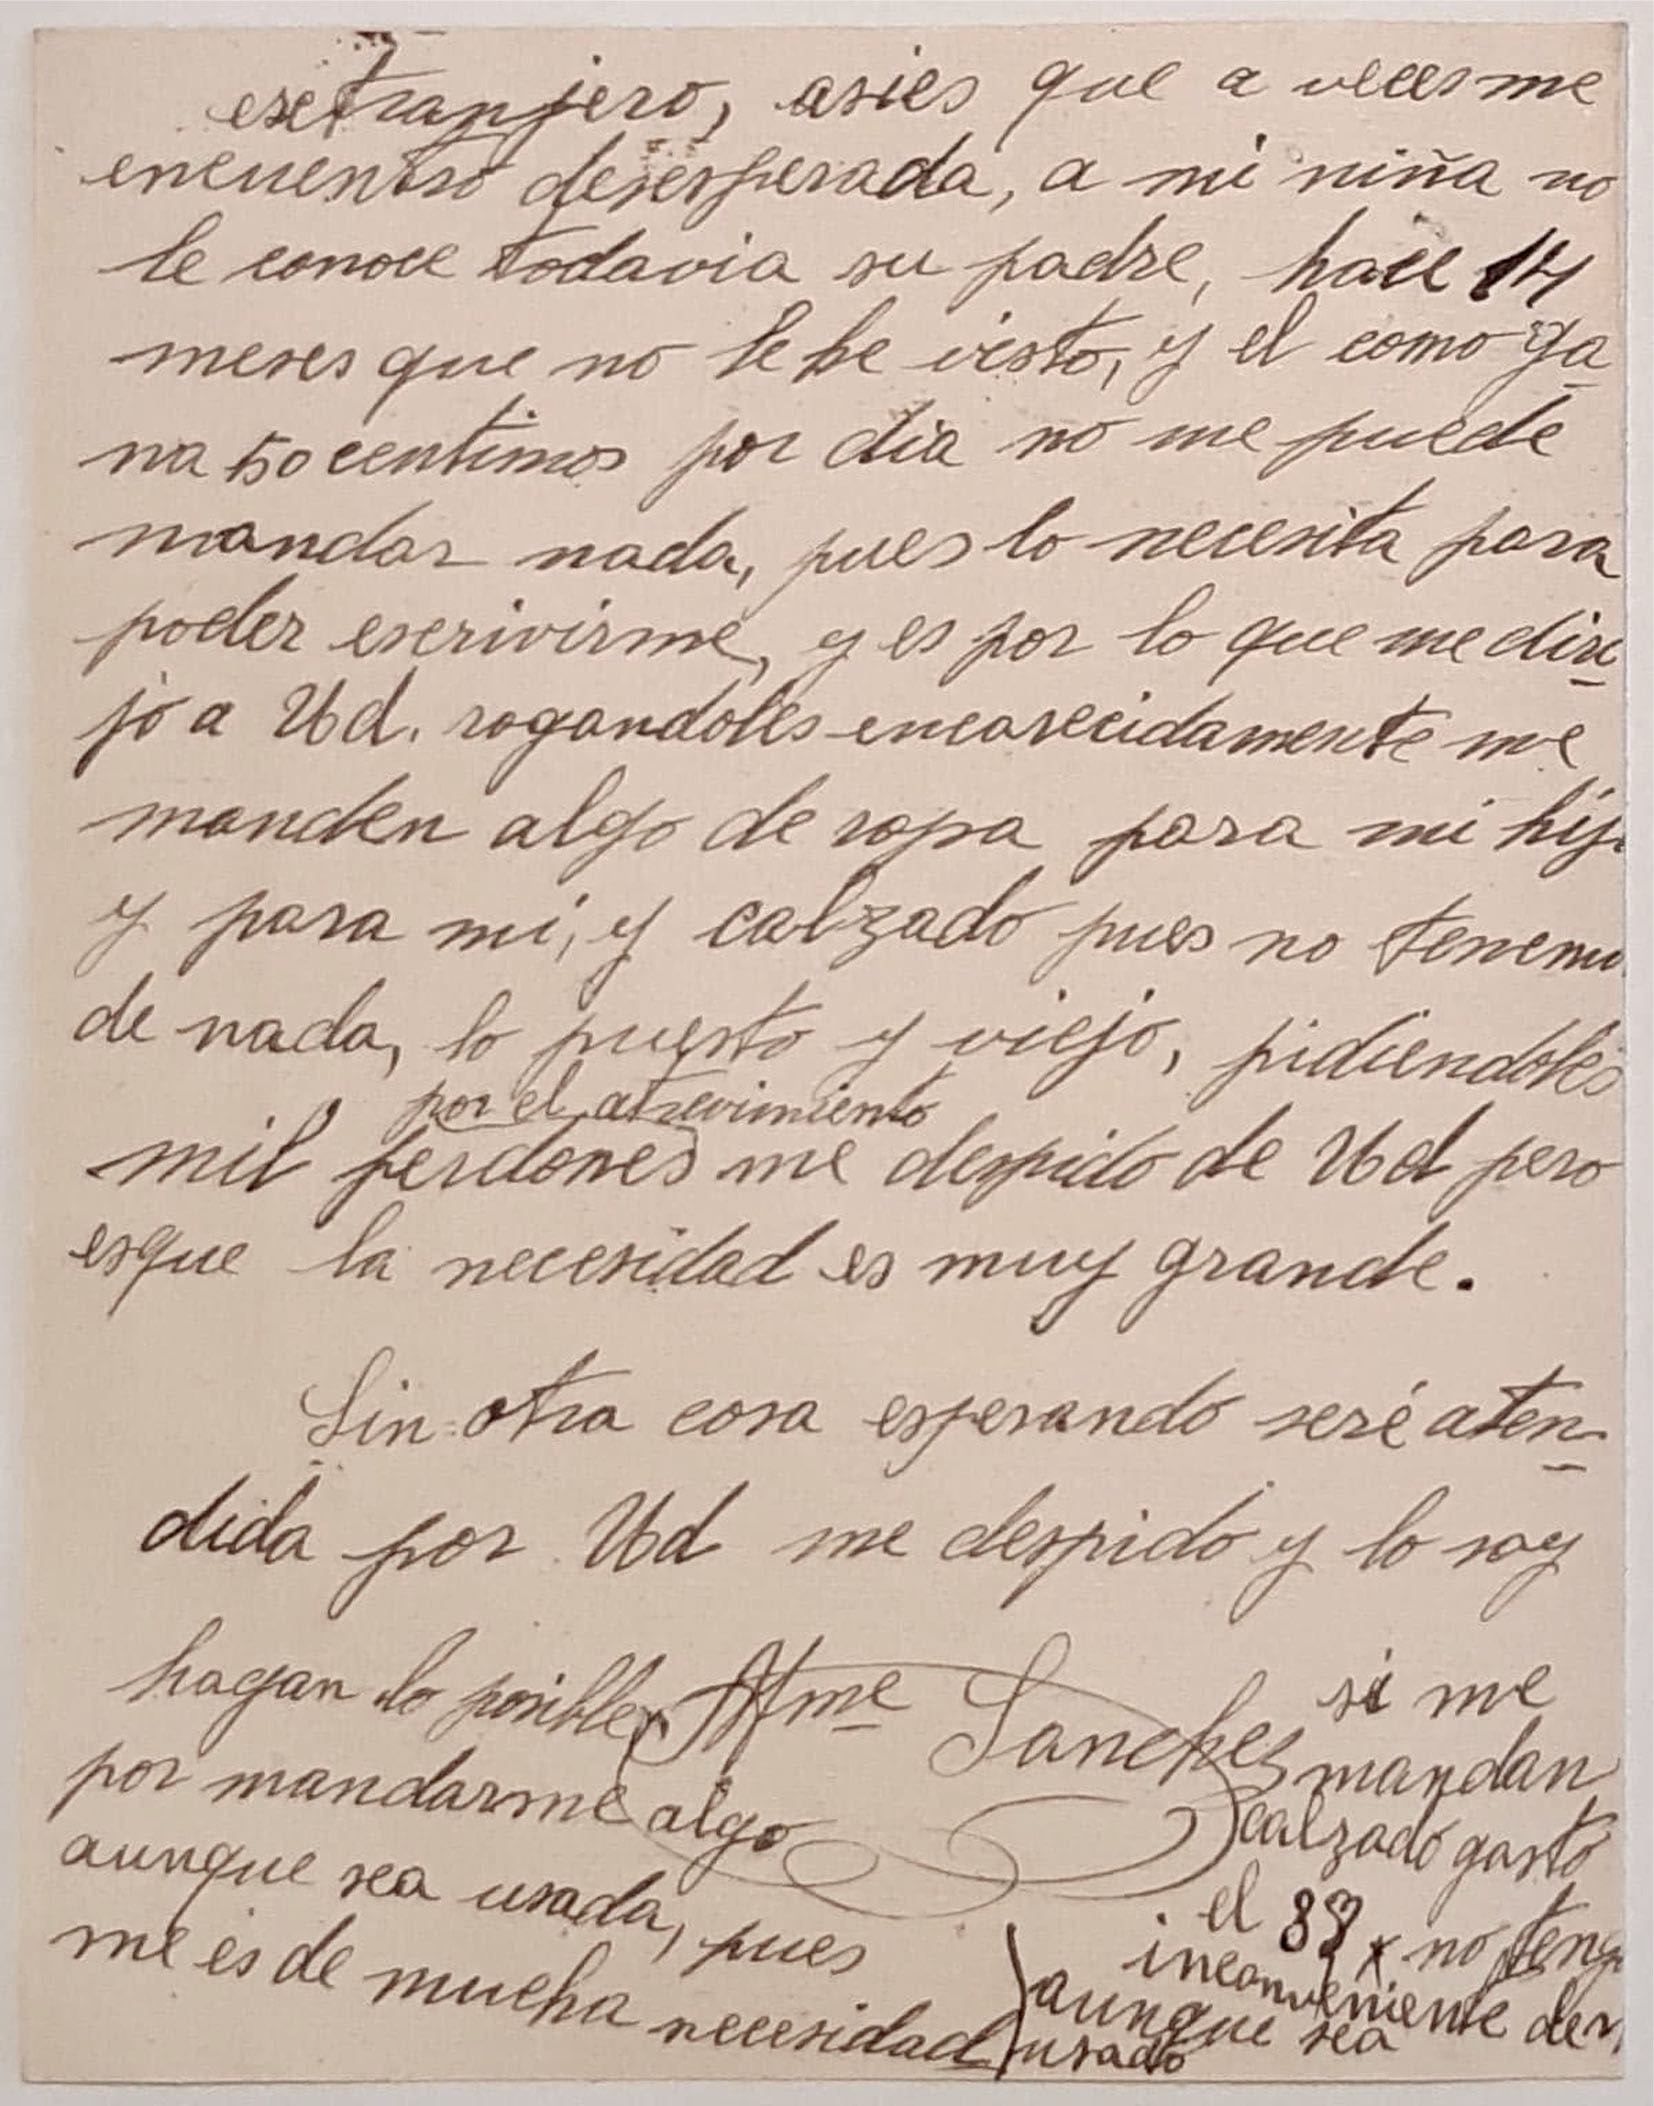 exetranjero, asies que a veces me
encuentro desesperada, a mi niña no
le conoce todavia su padre, hace 14
meses que no le he visto, y el como ga
na 50 centimos por dia no me puede
mandar nada, pues lo necesita para
poder escrivirme, y es por lo que me diri
jo a Ud. rogandoles encarecidamente me
manden algo de ropa para mi hij
y para mi, y calzado pues no tenemo
de nada, lo puesto y viejo, pidiendoles
por el atrevimiento
mil perdones me despido de Ud pero
esque la necesidad es muy grande.
Sin otra cosa esperando seré aten-
dida por Ud me despido y lo soy
Mme Sanches
hagan lo posible
por mandarme algo
aunque sea usada, pues
me es de mucha necesidad
si me
mandan
calzado gasto
el 38 x no teng
inconveniente
aunque sea
usado